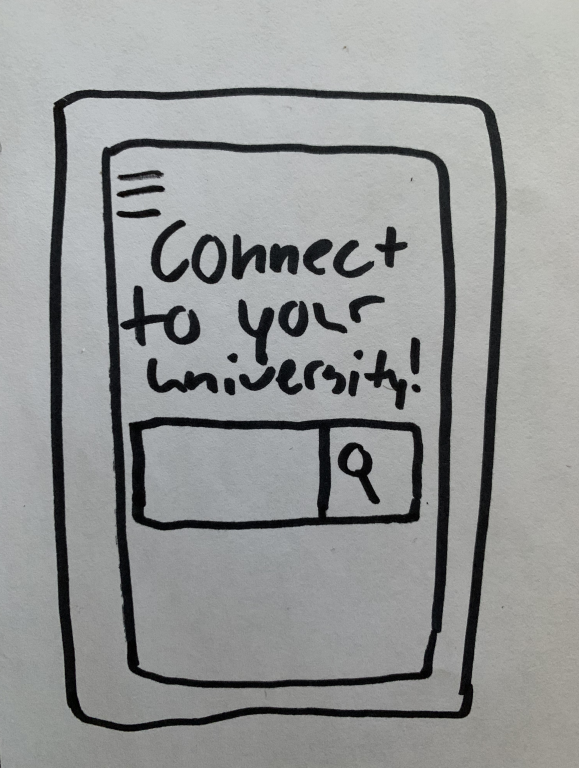 Connect
to your
university!